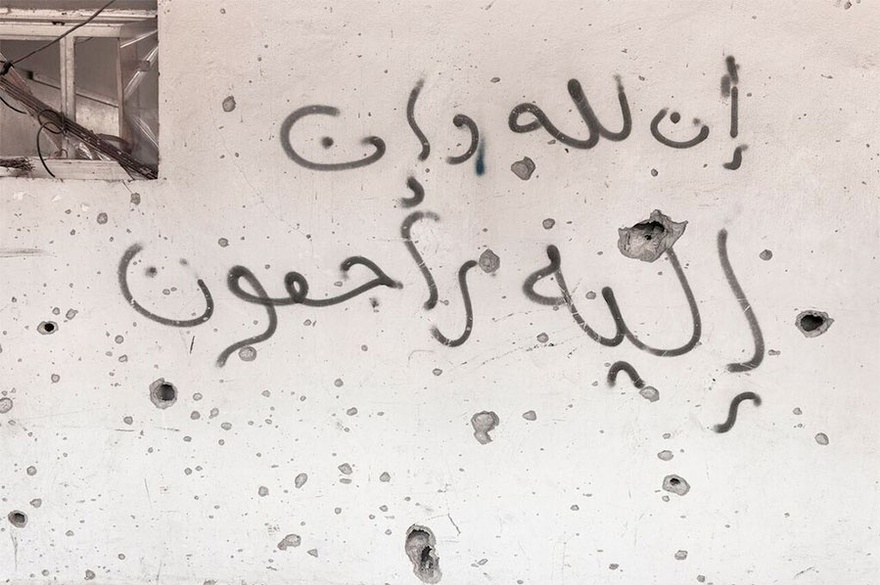 إن لله وإن
إليه راجعون